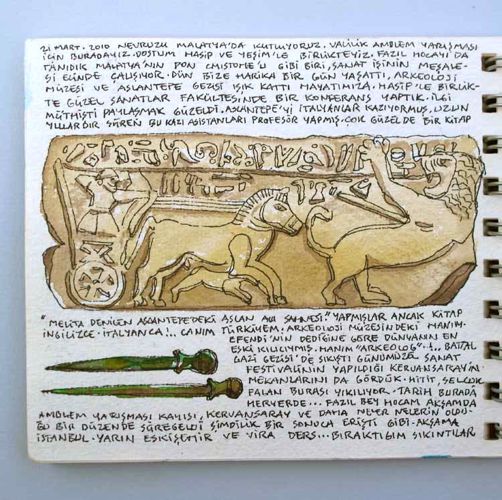 21 MART. 2010 NEVRUZU MALATYA'DA KUTLUYORUZ. VALİLİK AMBLEM YARIŞMASI
İÇİN BURADAYIZ. DOSTUM HASİP VE YEŞİM'LE BİRLİKTEYİZ. FAZIL HOCAYI DA
TANIDIK MALATYA'NIN DON GİBİ BİRİ, SANAT İŞİNİN MEŞALE-
Sİ ELİNDE ÇALIŞIYOR. DÜN BİZE HARİKA BİR GÜN YAŞATTI, ARKEOLOJİ
MÜZESİ VE ASLANTEPE GEZİSİ IŞIK KATTI HAYATIMIZA. HASİP'LE BİRLİK-
TE GÜZEL SANATLAR FAKÜLTESİNDE BİR KONFERANS YAPTIK. İLGİ
MÜTHİŞTİ PAYLAŞMAK GÜZELDİ. ASLANTEPE'Yİ İTALYANLAR KAZIYORMUŞ, UZUN
YILLARDIR SÜREN BU KAZI ASİSTANLARI PROFESÖR YAPMIŞ. ÇOK GÜZEL DE BİR KİTAP
"MELITA DENİLEN ASLANTEPE'DEKİ ASLAN AVI SAHNESİ." YAPMIŞLAR ANCAK KİTAP
İNGİLİZCE-İTALYANCA!... CANIM TÜRKİYEM. ARKEOLOJİ MÜZESİNDEKİ HANIM-
EFENDİ'NİN DEDİĞİNE GÖRE DÜNYANIN EN
ESKİ KILICIYMIŞ. HANIM "ARKEOLOG"-!... BATTAL
GAZİ GEZİSİ'DE SIKIŞTI GÜNÜMÜZE SANAT
FESTİVALİNİN YAPILDIĞI KERVANSARAYIN
MEKANLARINI DA GÖRDÜK. HİTİT, SELÇUK
FALAN BURASI YIKILIYOR. TARİH BURADA
HERYERDE... FAZIL BEY HOCAM AKŞAMDA
AMBLEM YARIŞMASI KAYISI, KERVANSARAY VE DAHA NELER NELERİN OLDU-
ĞU BİR DÜZENDE SÜREGELDİ ŞİMDİLİK BİR SONUCA ERİŞTİ GİBİ. AKŞAMA
İSTANBUL. YARIN ESKİŞEHİR VE VİRA DERS... BIRAKTIĞIM SIKINTILAR